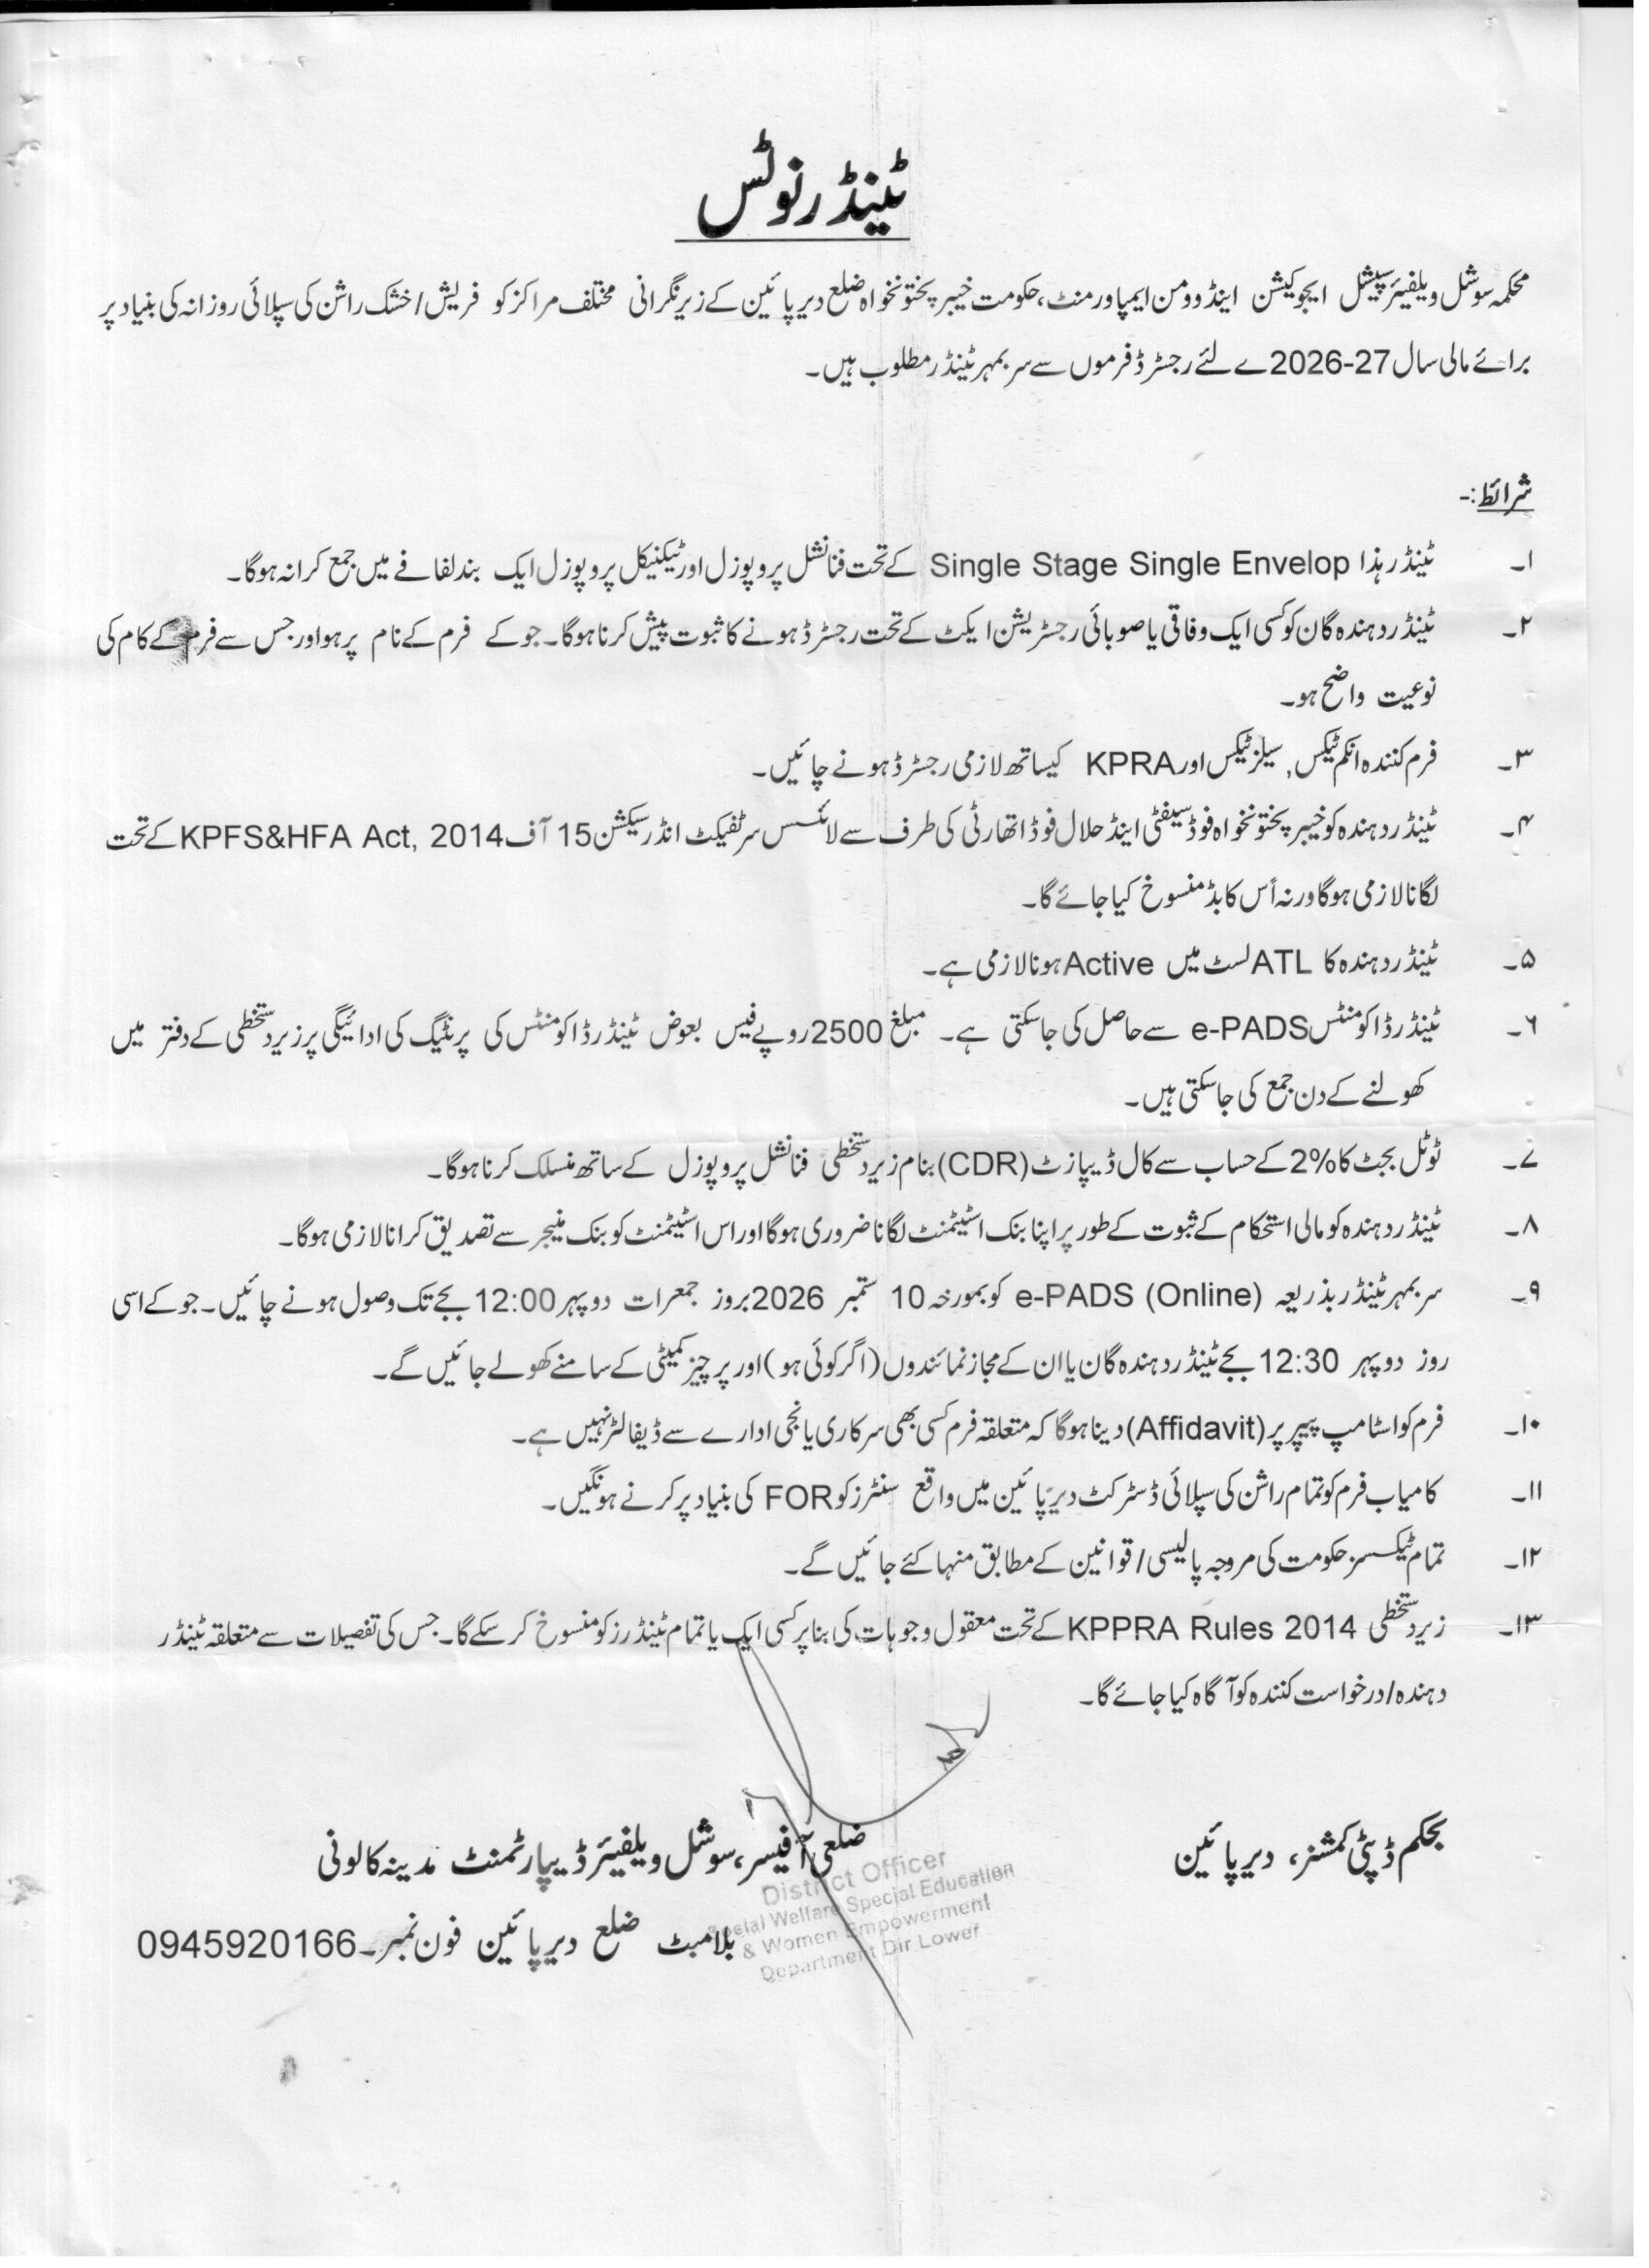 ٹینڈر نوٹس
محکمہ سوشل ویلفیئر سپیشل ایجوکیشن اینڈ وومن ایمپاورمنٹ، حکومت خیبر پختونخواہ ضلع دیر پائین کے زیر نگرانی مختلف مراکز کو فریش/خشک راشن کی سپلائی روزانہ کی بنیاد پر
برائے مالی سال 27-2026ے لئے رجسٹرڈ فرموں سے سربمہر ٹینڈر مطلوب ہیں۔
شرائط:-
۱۔ ٹینڈر ہذا Single Stage Single Envelop کے تحت فنانشل پروپوزل اور ٹیکنیکل پروپوزل ایک بند لفافے میں جمع کرانہ ہوگا۔
۲۔ ٹینڈر دہندہ گان کو کسی ایک وفاقی یا صوبائی رجسٹریشن ایکٹ کے تحت رجسٹرڈ ہونے کا ثبوت پیش کرنا ہوگا۔ جو کے فرم کے نام پر ہو اور جس سے فرم کے کام کی
نوعیت واضح ہو۔
۳۔ فرم کنندہ انکم ٹیکس, سیلز ٹیکس اور KPRA کیساتھ لازمی رجسٹرڈ ہونے چائیں۔
۴۔ ٹینڈر دہندہ کو خیبر پختونخواہ فوڈ سیفٹی اینڈ حلال فوڈ اتھارٹی کی طرف سے لائسنس سرٹفیکٹ انڈر سیکشن 15 آف KPFS&HFA Act, 2014 کے تحت
لگانا لازمی ہوگا ورنہ اُس کا بڈ منسوخ کیا جائے گا۔
۵۔ ٹینڈر دہندہ کا ATL لسٹ میں Active ہونا لازمی ہے۔
۶۔ ٹینڈر ڈاکومنٹس e-PADS سے حاصل کی جاسکتی ہے۔ مبلغ 2500 روپے فیس بعوض ٹینڈر ڈاکومنٹس کی پرنٹیگ کی ادائیگی پر زیر دستخطی کے دفتر میں
کھولنے کے دن جمع کی جاسکتی ہیں۔
۷۔ ٹوٹل بجٹ کا 2% کے حساب سے کال ڈیپازٹ (CDR) بنام زیر دستخطی فنانشل پروپوزل کے ساتھ منسلک کرنا ہوگا۔
۸۔ ٹینڈر دہندہ کو مالی استحکام کے ثبوت کے طور پر اپنا بنک اسٹیٹمنٹ لگانا ضروری ہوگا اور اس اسٹیٹمنٹ کو بنک منیجر سے تصدیق کرانا لازمی ہوگا۔
۹۔ سربمہر ٹینڈر بذریعہ e-PADS (Online) کو بمورخہ 10 ستمبر 2026 بروز جمعرات دوپہر 12:00 بجے تک وصول ہونے چائیں۔ جو کے اسی
روز دوپہر 12:30 بجے ٹینڈر دہندہ گان یا ان کے مجاز نمائندوں (اگر کوئی ہو) اور پرچیز کمیٹی کے سامنے کھولے جائیں گے۔
۱۰۔ فرم کو اسٹامپ پیپر پر (Affidavit) دینا ہوگا کہ متعلقہ فرم کسی بھی سرکاری یا نجی ادارے سے ڈیفالٹر نہیں ہے۔
۱۱۔ کامیاب فرم کو تمام راشن کی سپلائی ڈسٹرکٹ دیر پائین میں واقع سنٹرز کو FOR کی بنیاد پر کرنے ہونگیں۔
۱۲۔ تمام ٹیکسز حکومت کی مروجہ پالیسی/قوانین کے مطابق منہا کئے جائیں گے۔
۱۳۔ زیر دستخطی KPPRA Rules 2014 کے تحت معقول وجوہات کی بنا پر کسی ایک یا تمام ٹینڈرز کو منسوخ کر سکے گا۔ جس کی تفصیلات سے متعلقہ ٹینڈر
دہندہ/درخواست کنندہ کو آگاہ کیا جائے گا۔
بحکم ڈپٹی کمشنر، دیر پائین
ضلعی آفیسر، سوشل ویلفیئر ڈیپارٹمنٹ مدینہ کالونی
بلامبٹ ضلع دیر پائین فون نمبر۔ 0945920166
District Officer
Social Welfare Special Education
& Women Empowerment
Department Dir Lower